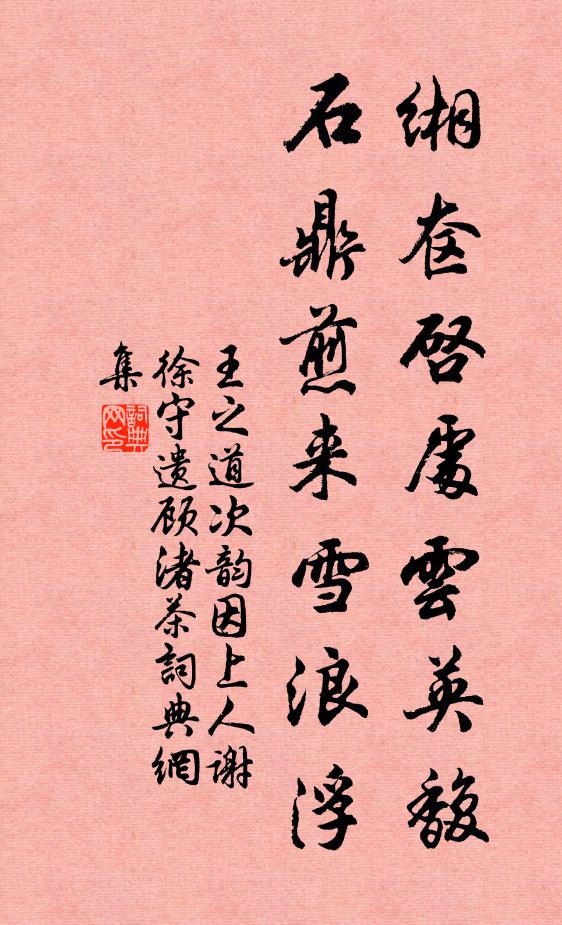 缃奁启處雲英馥
石鼎煎来雪浪浮
王之道次韵因上人谢
徐守遗顾渚茶詞典網
集
詞典网印